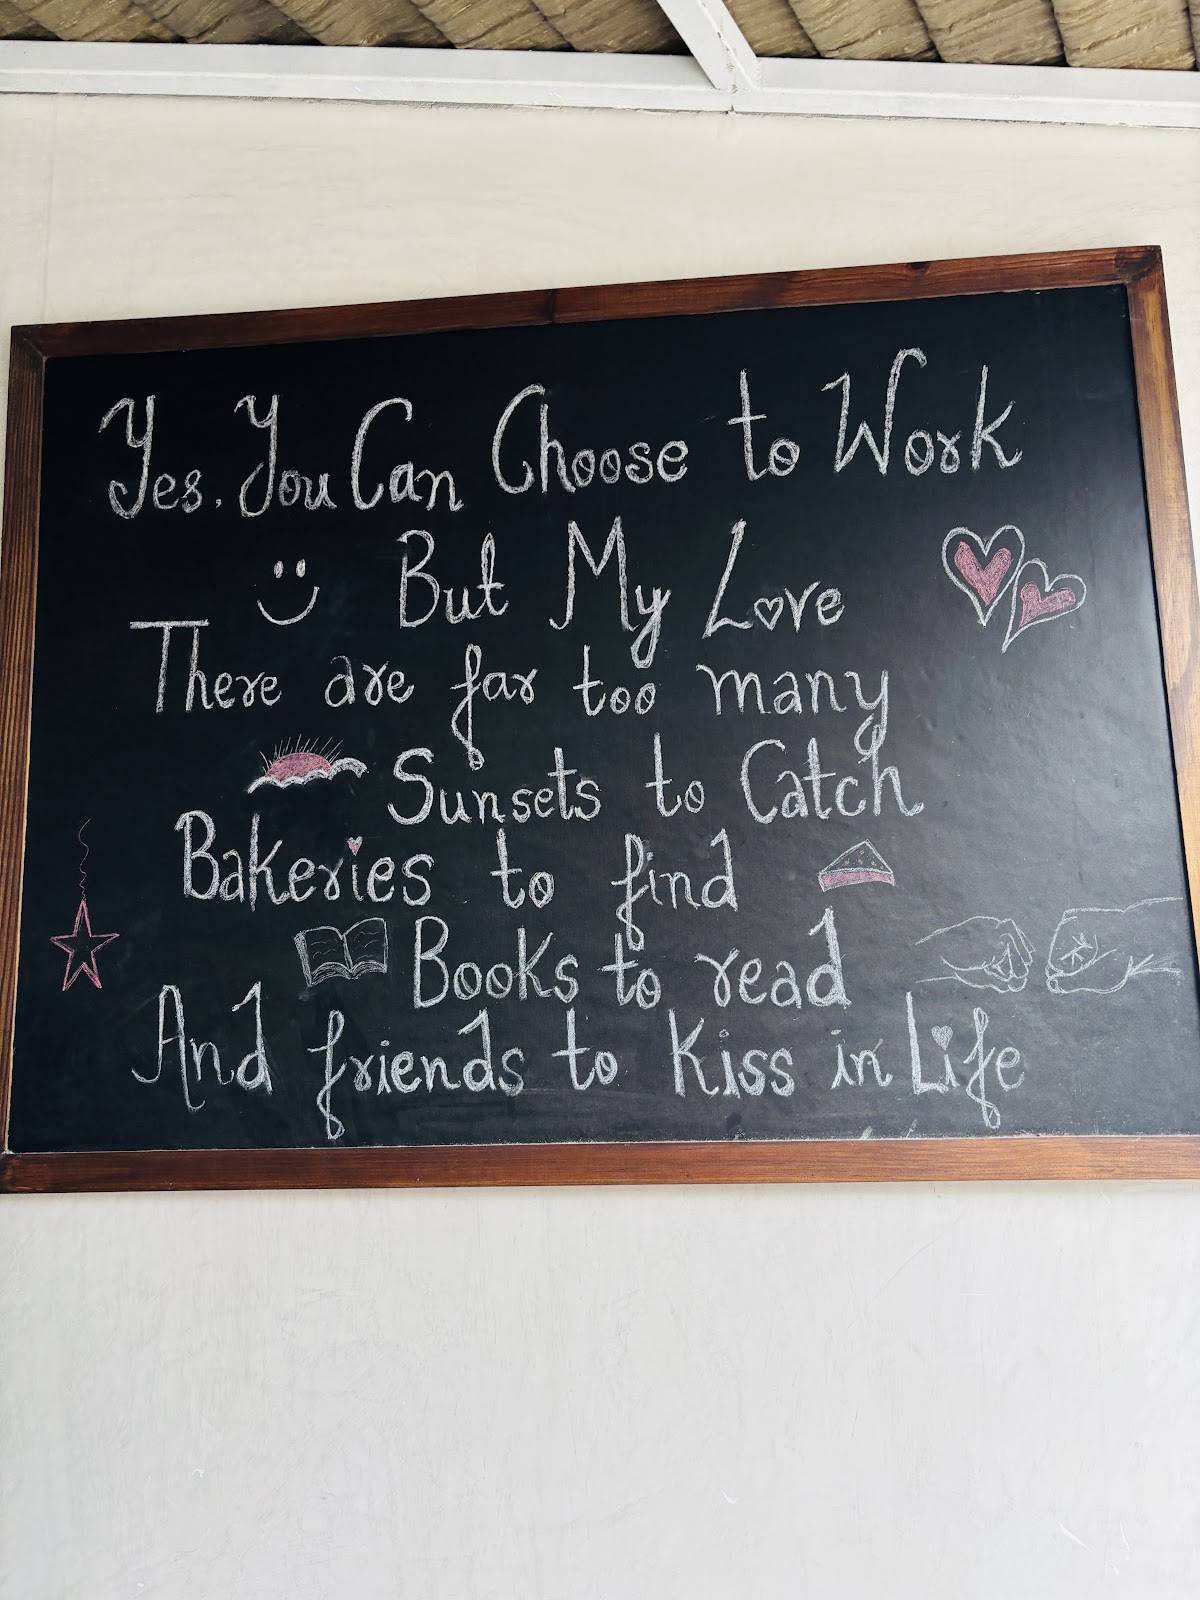 Yes, You Can Choose to Work
But My Love
There are far too many
Sunsets to Catch
Bakeries to find
Books to read
And friends to Kiss in Life